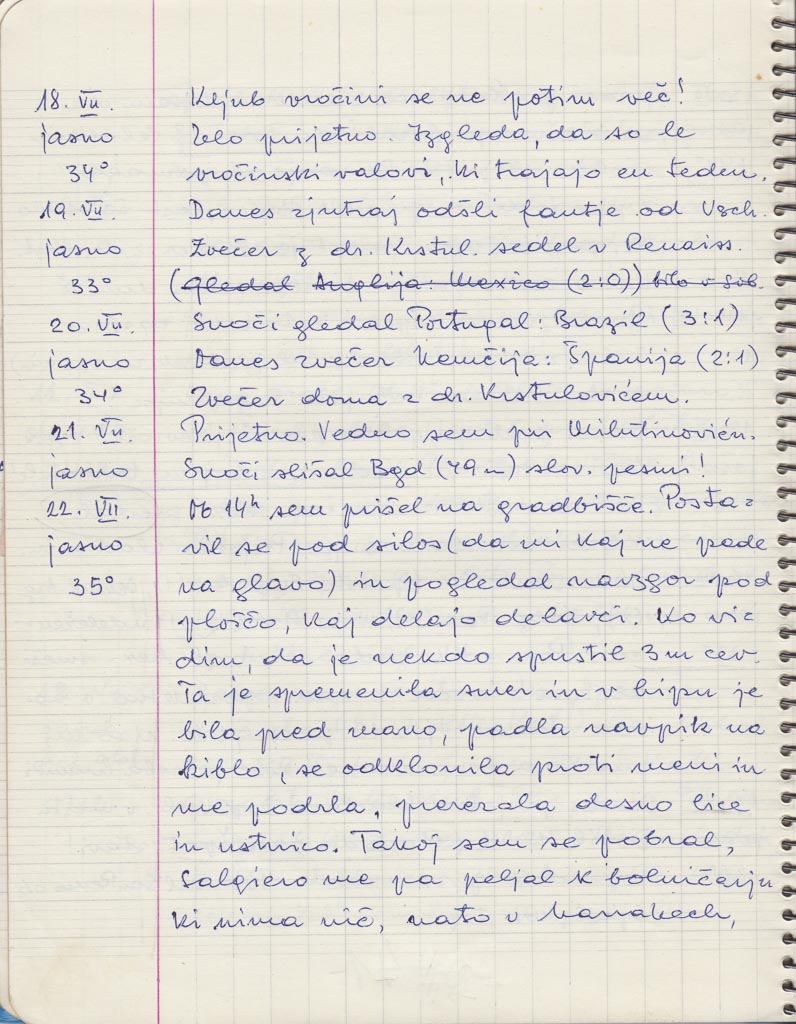 18. VII. Kljub vročini se ne potim več!
jasno Zelo prijetno. Izgleda, da so le
34° vročinski valovi, ki trajajo en teden.
19. VII. Danes zjutraj odšli fantje od Vsch.
jasno Zvečer z dr. Krstul. sedel v Renaiss.
33° (gledal Anglija: Mexico (2:0)) bilo v sob.
20. VII. Snoči gledal Portugal: Brazil (3:1)
jasno Danes zvečer Nemčija: Španija (2:1)
34° Zvečer doma z dr. Krstulovićem.
21. VII. Prijetno. Vedno sem pri Milutinoviću.
jasno Snoči slišal Bgd (49 m) slov. pesmi!
22. VII. Ob 14h sem prišel na gradbišče. Posta=
jasno vil se pod silos (da mi kaj ne pade
35° na glavo) in pogledal navzgor pod
ploščo, kaj delajo delavci. Ko vi=
dim, da je nekdo spustil 3 m cev.
Ta je spremenila smer in v hipu je
bila pred mano, padla navpik na
kiblo, se odklonila proti meni in
me podrla, prerezala desno lice
in ustnico. Takoj sem se pobral,
Salgiero me pa peljal k bolničarju
ki nima nič, nato v Marrakech,